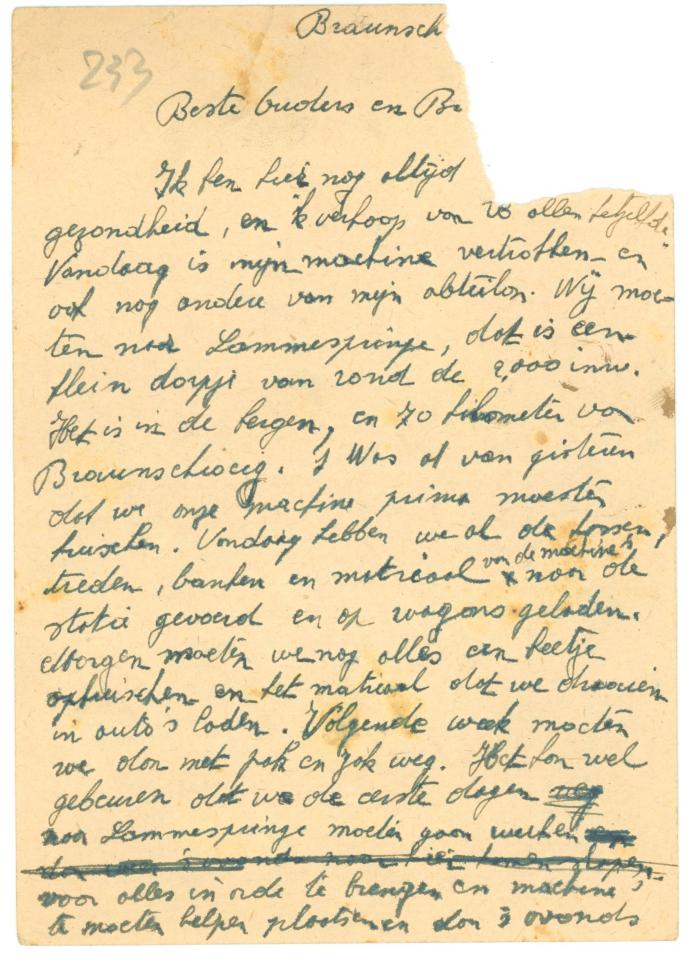 Braunsch
233
Beste Ouders en Br
Ik ben hier nog altijd
gezondheid, en 'k verhoop van U allen hetzelfde.
Vandaag is mijn machine vertrokken en
ook nog andere van mijn abteilon. Wij moe-
ten naar Lammespringe, dat is een
klein dorpje van rond de 2,000 inw.
Het is in de bergen, en 70 kilometer van
Braunschweig. 't Was al van gisteren
dat we onze machine prima moesten
kuischen. Vandaag hebben we al de kassen,
treden, banken en matriaal van de machine's naar de
statie gevoerd en op wagons geladen.
Morgen moeten we nog alles een beetje
opkuischen en het matriaal dat we draaien
in auto's laden. Volgende week moeten
we dan met pak en zak weg. Het kan wel
gebeuren dat we de eerste dagen weg
naar Lammespringe moeten gaan werken en
dan weer 's avonds naar hier komen slapen.
voor alles in orde te brengen en machine's
te moeten helpen plaatsen en dan 's avonds